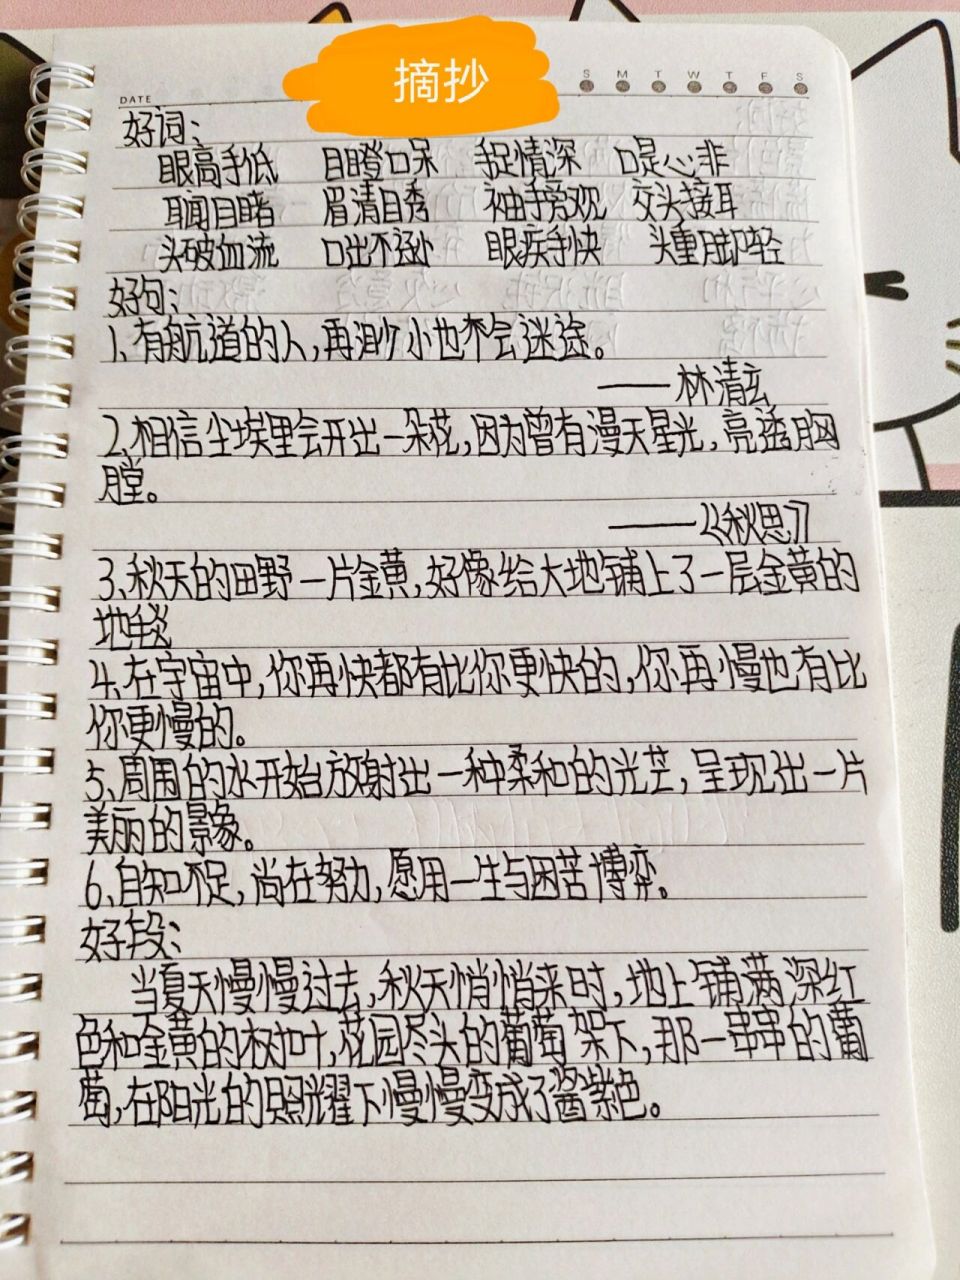 摘抄
S M T W T F S
DATE
好词：
眼高手低 目瞪口呆 手足情深 口是心非
耳闻目睹 眉清目秀 袖手旁观 交头接耳
头破血流 口出不逊 眼疾手快 头重脚轻
好句：
1、有航道的人，再渺小也不会迷途。
——林清玄
2、相信尘埃里会开出一朵花，因为曾有漫天星光，亮透胸
膛。
——《秋思》
3、秋天的田野一片金黄，好像给大地铺上了一层金黄的
地毯
4、在宇宙中，你再快都有比你更快的，你再慢也有比
你更慢的。
5、周围的水开始放射出一种柔和的光芒，呈现出一片
美丽的景象。
6、自知不足，尚在努力，愿用一生与困苦博弈。
好段：
当夏天慢慢过去，秋天悄悄来时，地上铺满深红
色和金黄的树叶，花园尽头的葡萄架下，那一串串的葡
萄，在阳光的照耀下慢慢变成了酱紫色。